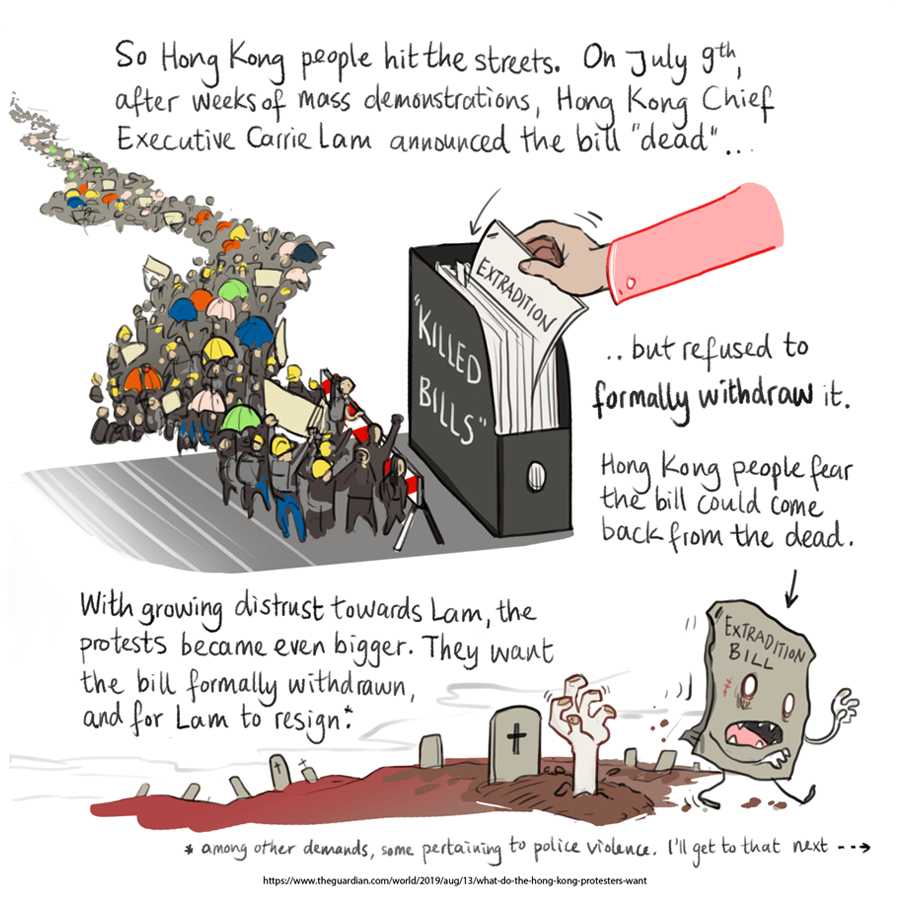 So Hong Kong people hit the streets. On July 9th,
after weeks of mass demonstrations, Hong Kong Chief
Executive Carrie Lam announced the bill "dead"...
EXTRADITION
"KILLED
BILLS"
.. but refused to
formally withdraw it.
Hong Kong people fear
the bill could come
back from the dead.
With growing distrust towards Lam, the
protests became even bigger. They want
the bill formally withdrawn,
and for Lam to resign.*
EXTRADITION
BILL
* among other demands, some pertaining to police violence. I'll get to that next -->
https://www.theguardian.com/world/2019/aug/13/what-do-the-hong-kong-protesters-want